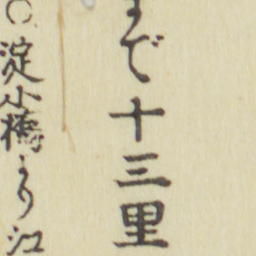 まで十三里
〇淀小橋より江